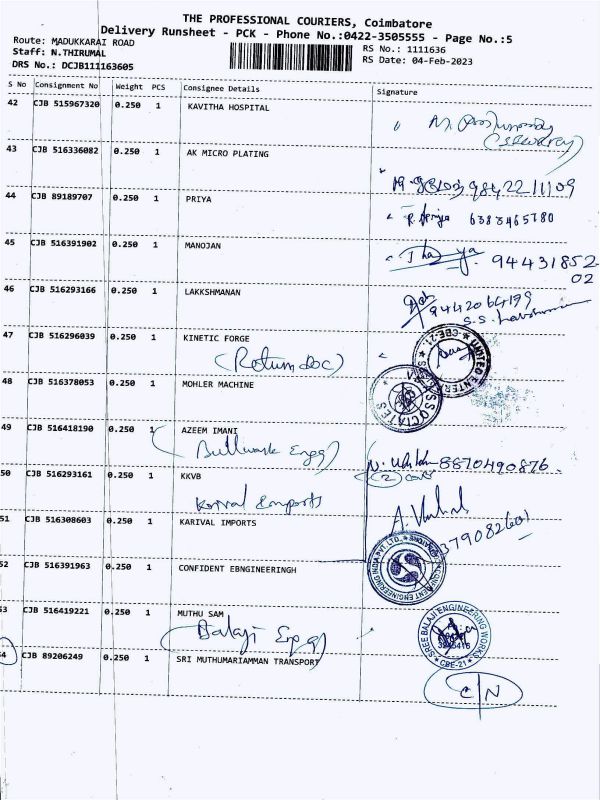 THE PROFESSIONAL COURIERS, Coimbatore
Delivery Runsheet - PCK - Phone No.:0422-3505555 - Page No.:5
Route: MADUKKARAI ROAD
RS No.: 1111636
Staff: N.THIRUMAL
RS Date: 04-Feb-2023
DRS No.: DCJB111163605
S No Consignment No Weight PCS Consignee Details Signature
42 CJB 515967320 0.250 1 KAVITHA HOSPITAL
43 CJB 516336082 0.250 1 AK MICRO PLATING
9842211109
44 CJB 89189707 0.250 1 PRIYA
R. Priya 6383465780
45 CJB 516391902 0.250 1 MANOJAN
94431852
02
46 CJB 516293166 0.250 1 LAKKSHMANAN
9442064199
S.S.
47 CJB 516296039 0.250 1 KINETIC FORGE
(Return doc)
48 CJB 516378053 0.250 1 MOHLER MACHINE
49 CJB 516418190 0.250 1 AZEEM IMANI
Engg)
8870490876
50 CJB 516293161 0.250 1 KKVB
(2)
51 CJB 516308603 0.250 1 KARIVAL IMPORTS
52 CJB 516391963 0.250 1 CONFIDENT EBNGINEERINGH
53 CJB 516419221 0.250 1 MUTHU SAM
(Balaji Engg)
SREE BALAJI ENGINEERING WORKS
CBE-21
54 CJB 89206249 0.250 1 SRI MUTHUMARIAMMAN TRANSPORT
C/N